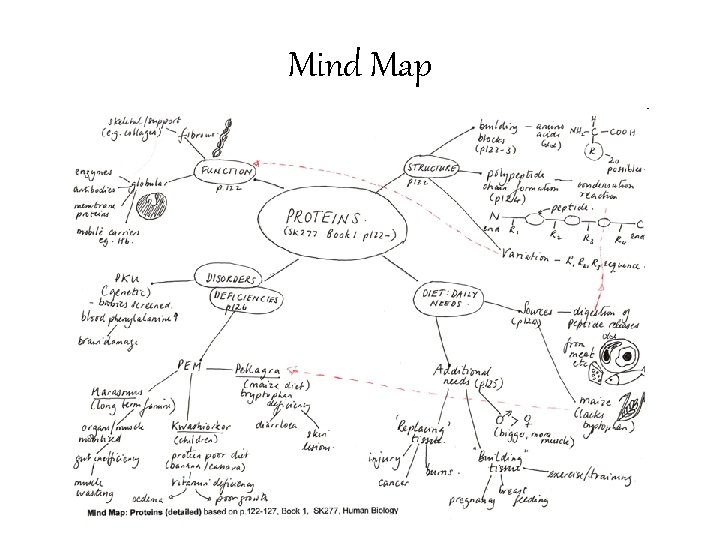 Mind Map
skeletal/support
(e.g. collagen)
fibrous
FUNCTION
p122
enzymes
antibodies
membrane
proteins
mobile carriers
eg. Hb.
globular
STRUCTURE
p122
building
blocks
(p122-3)
amino
acids
(20)
H
NH2 - C - COOH
R
20
possibles.
polypeptide
chain formation
(p124)
condensation
reaction
peptide.
N
end
R1
R2
R3
R4
C
end
Variation - R, R2 R3 sequence.
PROTEINS.
(SK277 Book 1 p122-)
DISORDERS
DEFICIENCIES
p126
PKU
(genetic)
- babies screened.
blood phenylalanine ↑
brain damage
PEM
Marasmus
(long term famine)
organ/muscle
mobilised
gut inefficiency
muscle
wasting
Kwashiorkor
(children)
protein poor diet
(banana/cassava)
vitamin deficiency
oedema
poor growth
Pellagra
(maize diet)
tryptophan
deficiency
diarrhoea
skin
lesions.
DIET: DAILY
NEEDS.
Sources
(p124)
digestion of
peptide releases
from
meat
etc
maize
(lacks
tryptophan)
Additional
needs (p125)
♂ > ♀
(bigger, more
muscle)
'Replacing'
tissue
injury
cancer
burns.
"Building"
tissue
pregnancy
breast
feeding
exercise/training
Mind Map: Proteins (detailed) based on p.122-127, Book 1, SK277, Human Biology